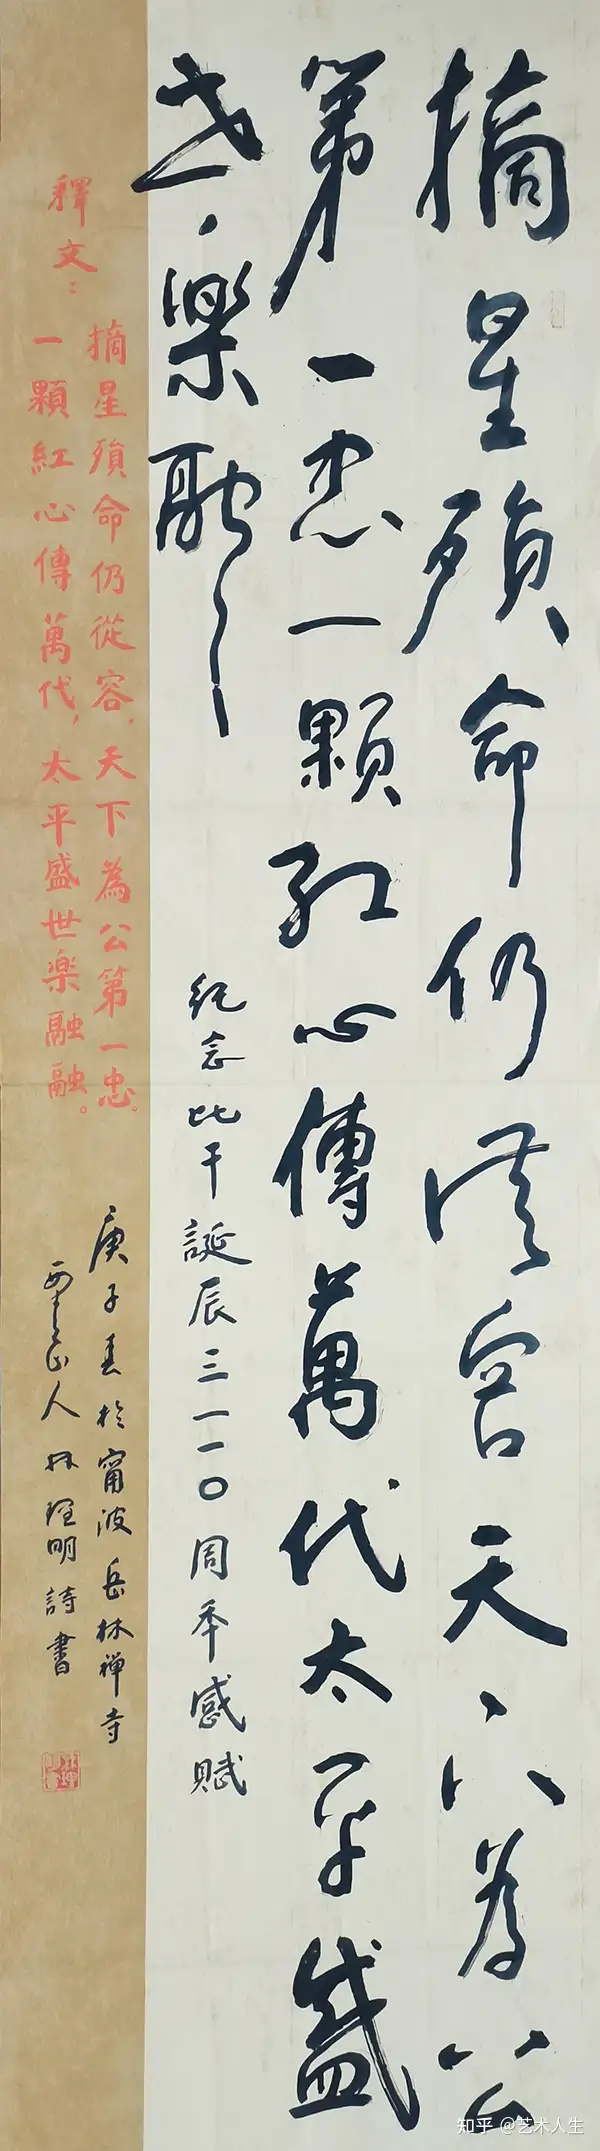 摘星殞命仍從容天下為公
第一忠一顆紅心傳萬代太平盛
世樂融融
紀念比干誕辰三一一〇周年感賦
釋文：
摘星殞命仍從容，天下為公第一忠。
一顆紅心傳萬代，太平盛世樂融融。
庚子春於甯波岳林禅寺
人林理明詩書
知乎 @艺术人生